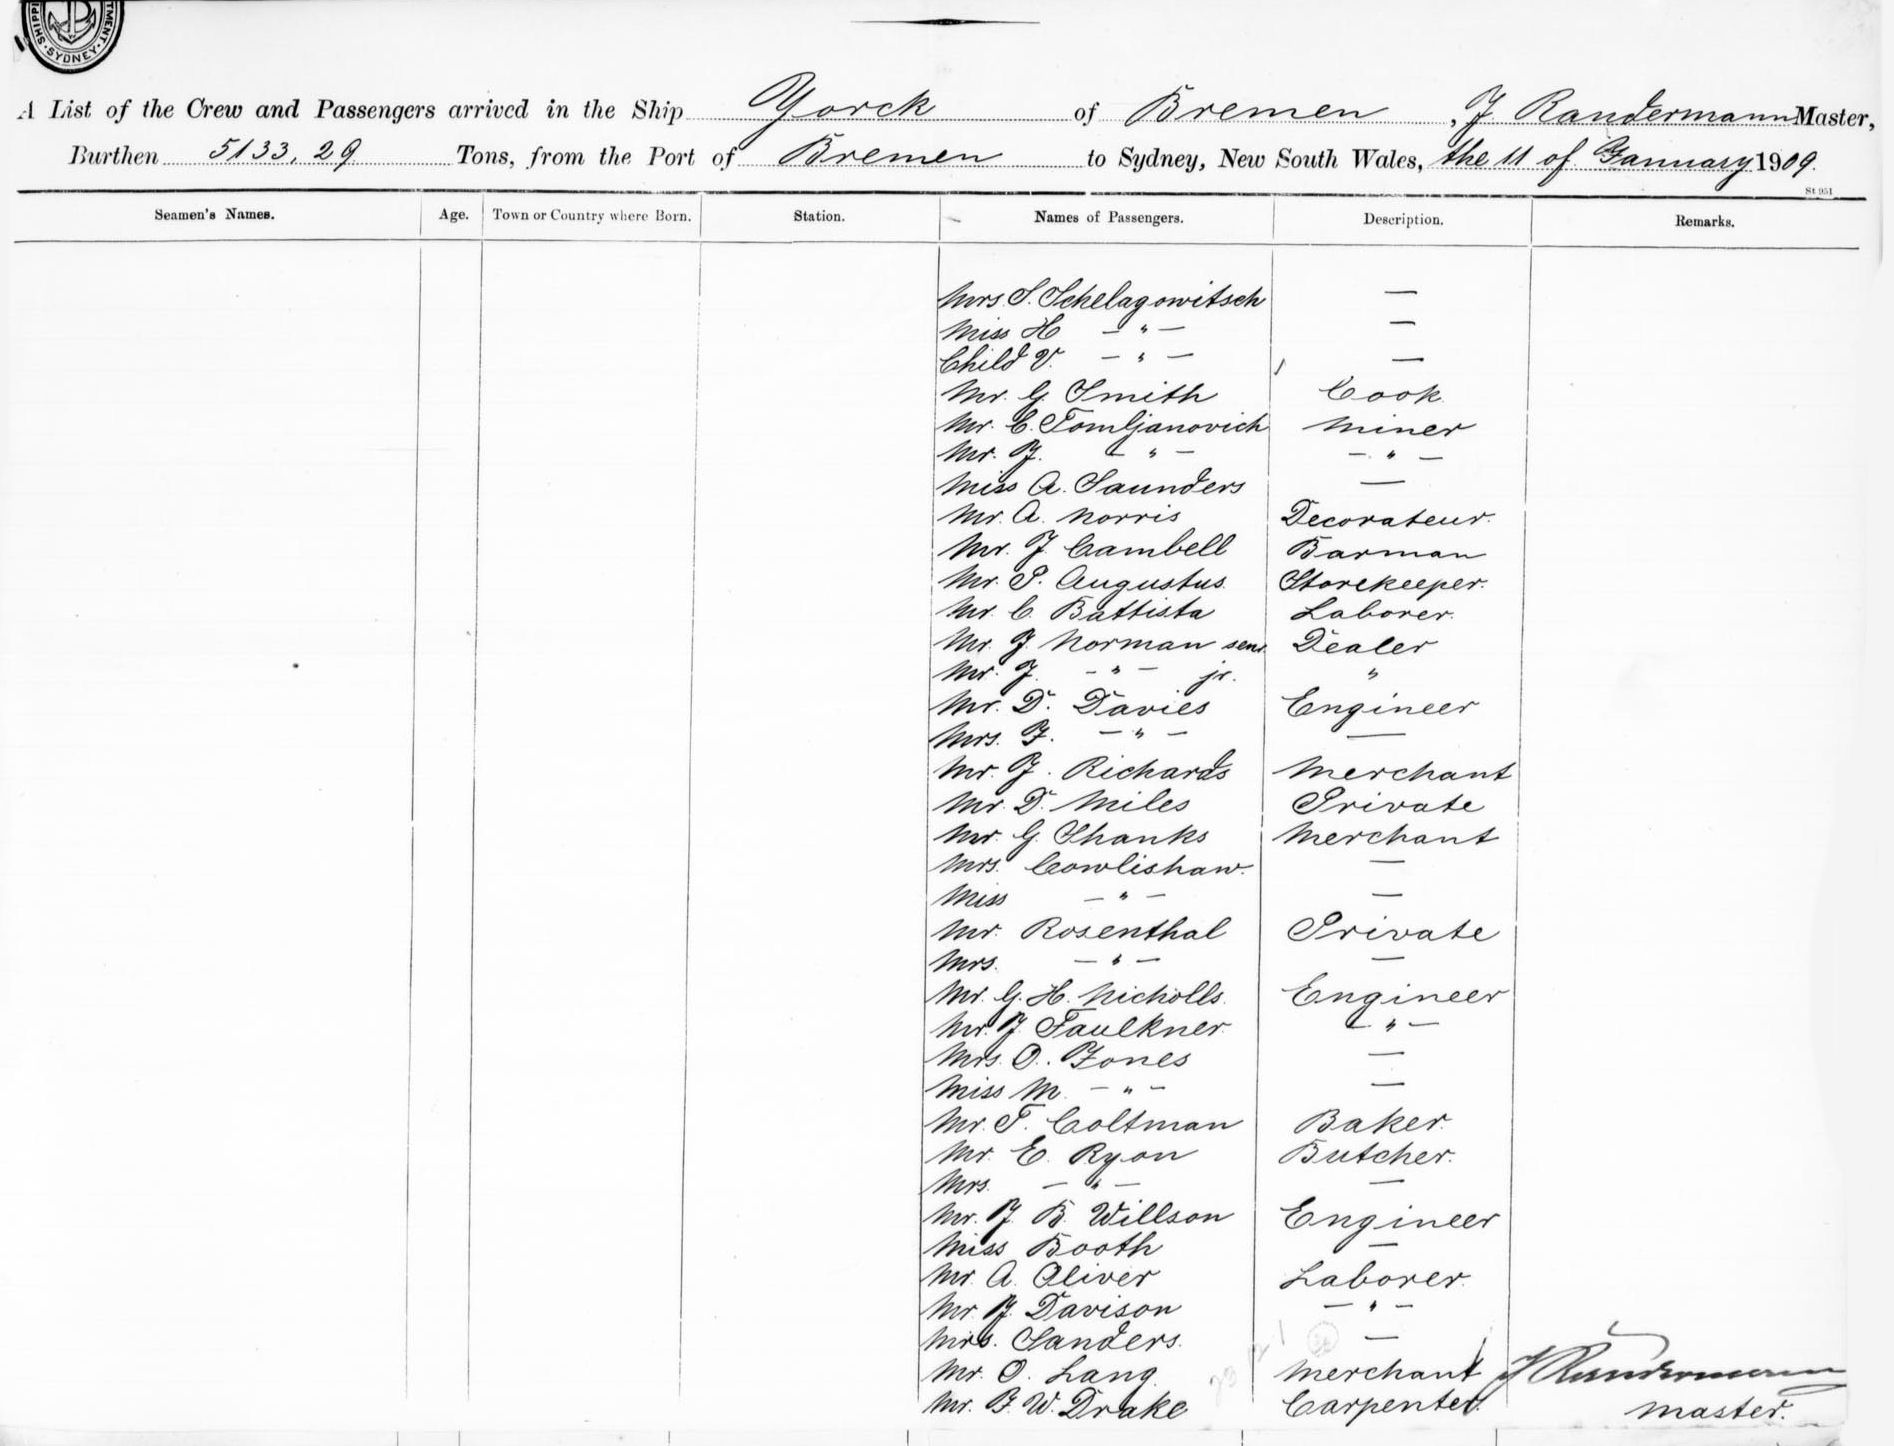 SHIPPI TMENT · SYDNEY ·
A List of the Crew and Passengers arrived in the Ship Yorck of Bremen, J Randermann Master,
Burthen 5133,29 Tons, from the Port of Bremen to Sydney, New South Wales, the 11 of January 1909.
St 951
Seamen's Names. Age. Town or Country where Born. Station. Names of Passengers. Description. Remarks.
Mrs. S. Schelagowitsch —
Miss H — " — —
Child V. — " — —
Mr. G. Smith Cook
Mr. C. Tomljanovich Miner
Mr. J. — " — — " —
Miss A. Saunders —
Mr. A. Norris Decorateur.
Mr. J. Cambell Barman
Mr. P. Augustus. Storekeeper.
Mr. C. Battista Laborer.
Mr. J. Norman senr. Dealer
Mr. J. — " — jr. "
Mr. D. Davies Engineer
Mrs. J. — " — —
Mr. J. Richards Merchant
Mr. D. Miles Private
Mr. G. Shanks Merchant
Mrs. Cowlishaw. —
Miss — " — —
Mr. Rosenthal Private
Mrs. — " — —
Mr. G. H. Nicholls. Engineer
Mr. J. Faulkner. — " —
Mrs. O. Jones —
Miss M. — " — —
Mr. T. Coltman Baker.
Mr. E. Ryon Butcher.
Mrs. — " — —
Mr. J. B. Willson Engineer
Miss Booth —
Mr. A. Oliver Laborer.
Mr. J. Davison — " —
Mrs. Sanders. —
Mr. O. Lang. Merchant J Randermann
Mr. J. W. Drake Carpenter. Master.